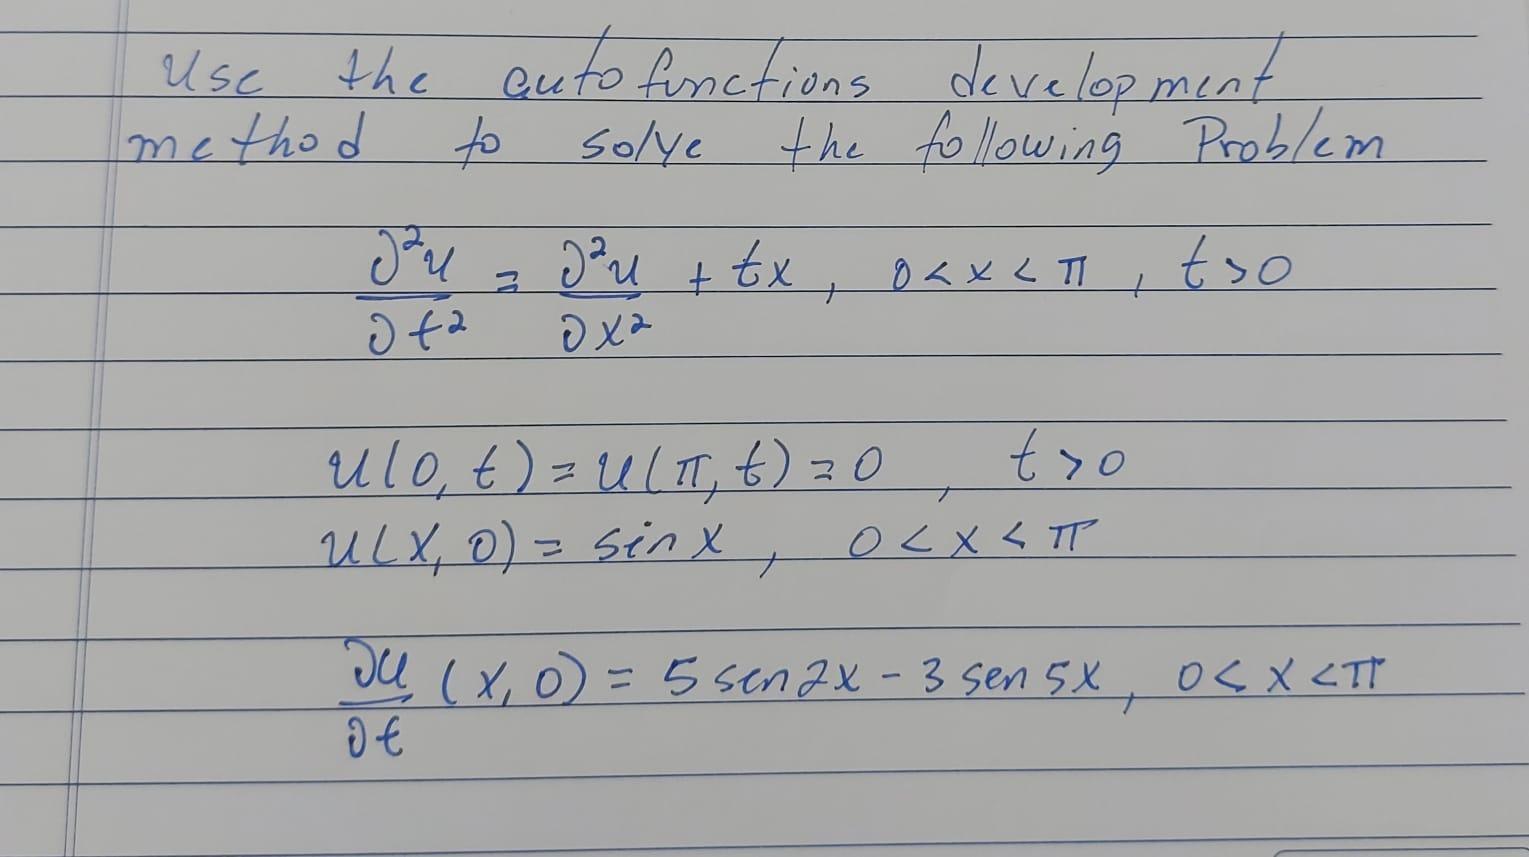 Use the autofunctions development
method to solve the following Problem
∂²u/∂t² = ∂²u/∂x² + tx, 0 < x < π, t > 0
u(0, t) = u(π, t) = 0, t > 0
u(x, 0) = sin x, 0 < x < π
∂u/∂t (x, 0) = 5 sen 2x - 3 sen 5x, 0 < x < π